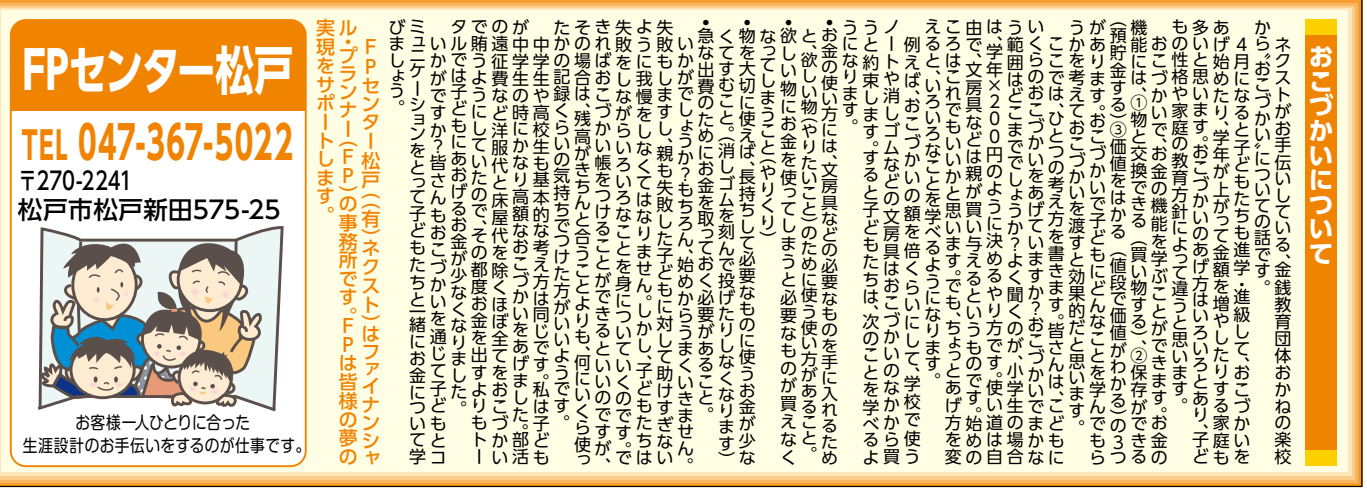 おこづかいについて
　ネクストがお手伝いしている、金銭教育団体おかねの楽校
から〝おこづかい〟についての話です。
　４月になると子どもたちも進学・進級して、おこづかいを
あげ始めたり、学年が上がって金額を増やしたりする家庭も
多いと思います。おこづかいのあげ方はいろいろとあり、子ど
もの性格や家庭の教育方針によって違うと思います。
　おこづかいで、お金の機能を学ぶことができます。お金の
機能には、①物と交換できる（買い物する）、②保存ができる
（預貯金する）③価値をはかる（値段で価値がわかる）の３つ
があります。おこづかいで子どもにどんなことを学んでもら
うかを考えておこづかいを渡すと効果的だと思います。
　ここでは、ひとつの考え方を書きます。皆さんは、こどもに
いくらのおこづかいをあげていますか？おこづかいでまかな
う範囲はどこまででしょうか？よく聞くのが、小学生の場合
は、学年×２００円のように決めるやり方です。使い道は自
由で、文房具などは親が買い与えるというものです。始めの
ころはこれでもいいかと思います。でも、ちょっとあげ方を変
えると、いろいろなことを学べるようになります。
　例えば、おこづかいの額を倍くらいにして、学校で使う
ノートや消しゴムなどの文房具はおこづかいのなかから買
うと約束します。すると子どもたちは、次のことを学べるよ
うになります。
・お金の使い方には、文房具などの必要なものを手に入れるため
と、欲しい物（やりたいこと）のために使う使い方があること。
・欲しい物にお金を使ってしまうと必要なものが買えなく
なってしまうこと（やりくり）
・物を大切に使えば、長持ちして必要なものに使うお金が少な
くてすむこと。（消しゴムを刻んで投げたりしなくなります）
・急な出費のためにお金を取っておく必要があること。
　いかがでしょうか？もちろん、始めからうまくいきません。
失敗もしますし、親も失敗した子どもに対して助けすぎない
ように我慢をしなくてはなりません。しかし、子どもたちは
失敗をしながらいろいろなことを身についていくのです。で
きればおこづかい帳をつけることができるといいのですが、
その場合は、残高がきちんと合うことよりも、何にいくら使っ
たかの記録くらいの気持ちでつけた方がいいようです。
　中学生や高校生も基本的な考え方は同じです。私は子ども
が中学生の時にかなり高額なおこづかいをあげました。部活
の遠征費など洋服代と床屋代を除くほぼ全てをおこづかい
で賄うようにしていたので、その都度お金を出すよりもトー
タルでは子どもにあおげるお金が少なくなりました。
　いかがですか？皆さんもおこづかいを通じて子どもとコ
ミュニケーションをとって子どもたちと一緒にお金について学
びましょう。
　ＦＰセンター松戸（（有）ネクスト）はファイナンシャ
ル・プランナー（ＦＰ）の事務所です。ＦＰは皆様の夢の
実現をサポートします。
FPセンター松戸
TEL 047-367-5022
〒270-2241
松戸市松戸新田575-25
お客様一人ひとりに合った
生涯設計のお手伝いをするのが仕事です。